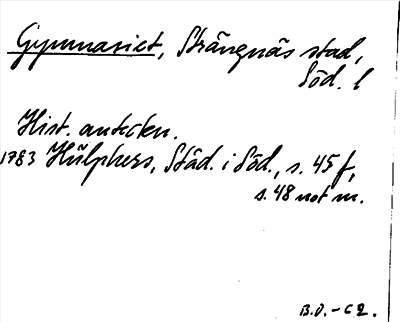 Gymnasiet, Strängnäs stad,
Söd. l
Hist. anteckn.
1783 Hülphers, Städ. i Söd., s. 45 f,
s. 48 not m.
B.D.-62.